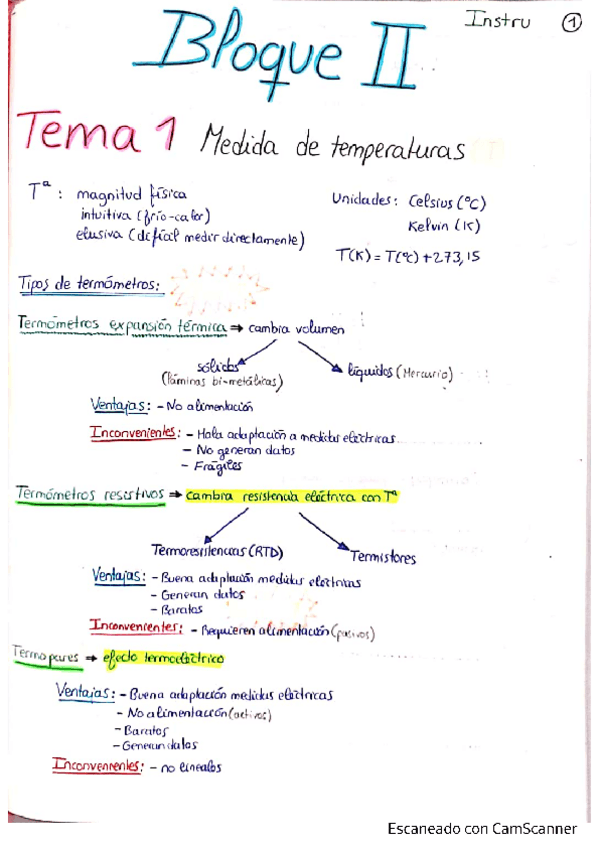 Instru 1
Bloque II
Tema 1 Medida de temperaturas
Tª: magnitud física
intuitiva (frío-calor)
elusiva (difícil medir directamente)
Unidades: Celsius (ºC)
Kelvin (K)
T(K) = T(ºC) + 273,15
Tipos de termómetros:
Termómetros expansión térmica → cambia volumen
sólidos
(láminas bi-metálicas)
líquidos (Mercurio)
Ventajas: - No alimentación
Inconvenientes: - Mala adaptación a medidas eléctricas
- No generan datos
- Frágiles
Termómetros resistivos → cambia resistencia eléctrica con Tª
Termoresistencias (RTD)
Termistores
Ventajas: - Buena adaptación medidas eléctricas
- Generan datos
- Baratos
Inconvenientes: - Requieren alimentación (pasivos)
Termopares → efecto termoeléctrico
Ventajas: - Buena adaptación medidas eléctricas
- No alimentación (activos)
- Baratos
- Generan datos
Inconvenientes: - no lineales
Escaneado con CamScanner